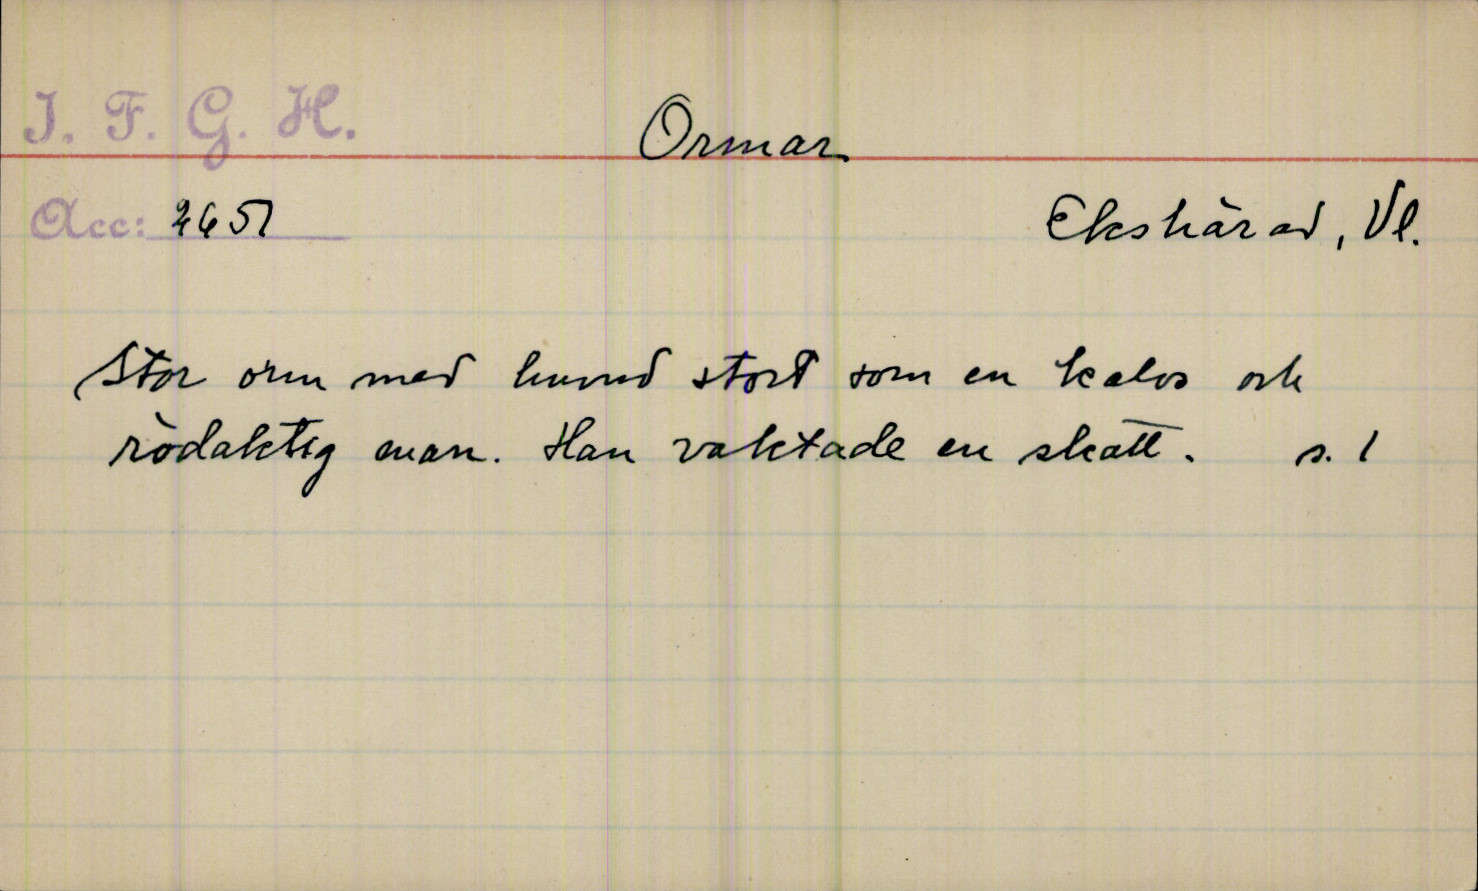 I. F. G. H.
Ormar
Acc: 2651
Ekshärad, Vl.
Stor orm med huvud stort som en kalvs och
rödaktig man. Han vaktade en skatt. s. 1